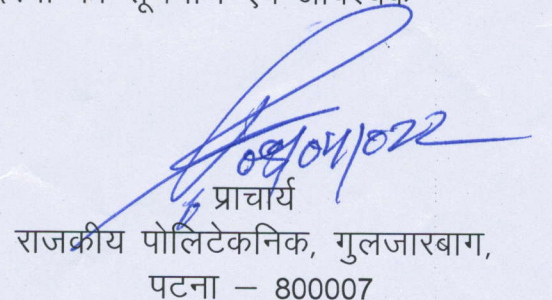 एवं
08/04/022
प्राचार्य
राजकीय पोलिटेकनिक, गुलजारबाग,
पटना – 800007